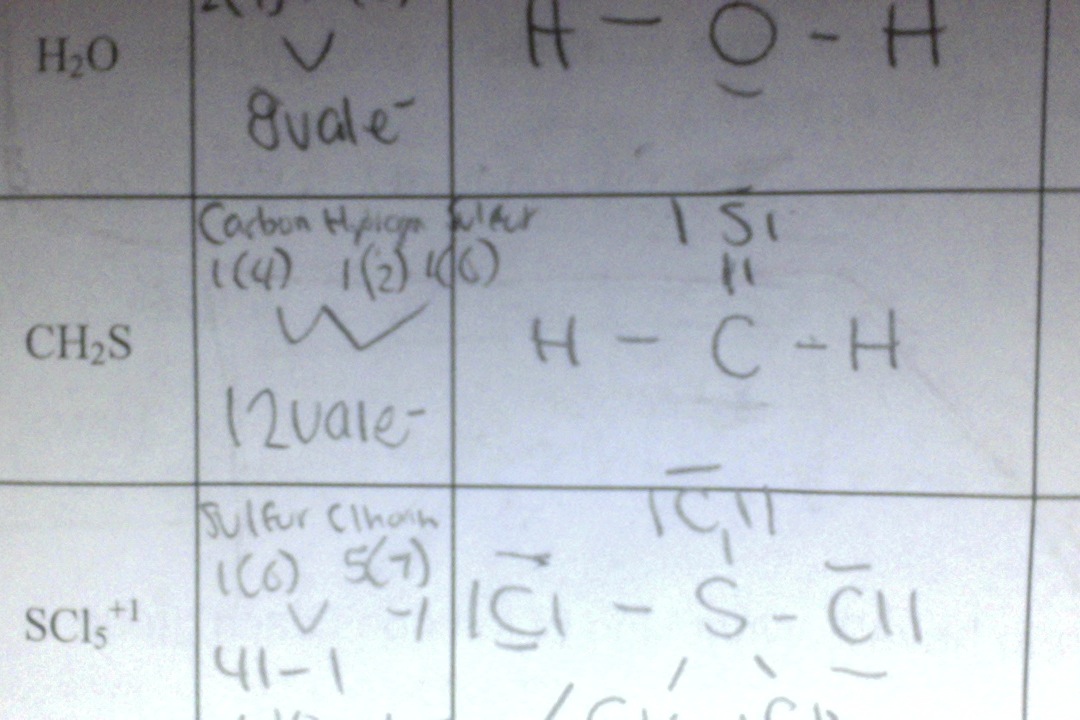 H₂O
8 vale⁻
H - O - H
CH₂S
Carbon Hydrogen Sulfur
1(4) 1(2) 1(6)
12 vale⁻
S
H - C - H
SCl₅⁺¹
Sulfur
1(6) 5(7)
-1
41-1
Cl
Cl - S - Cl